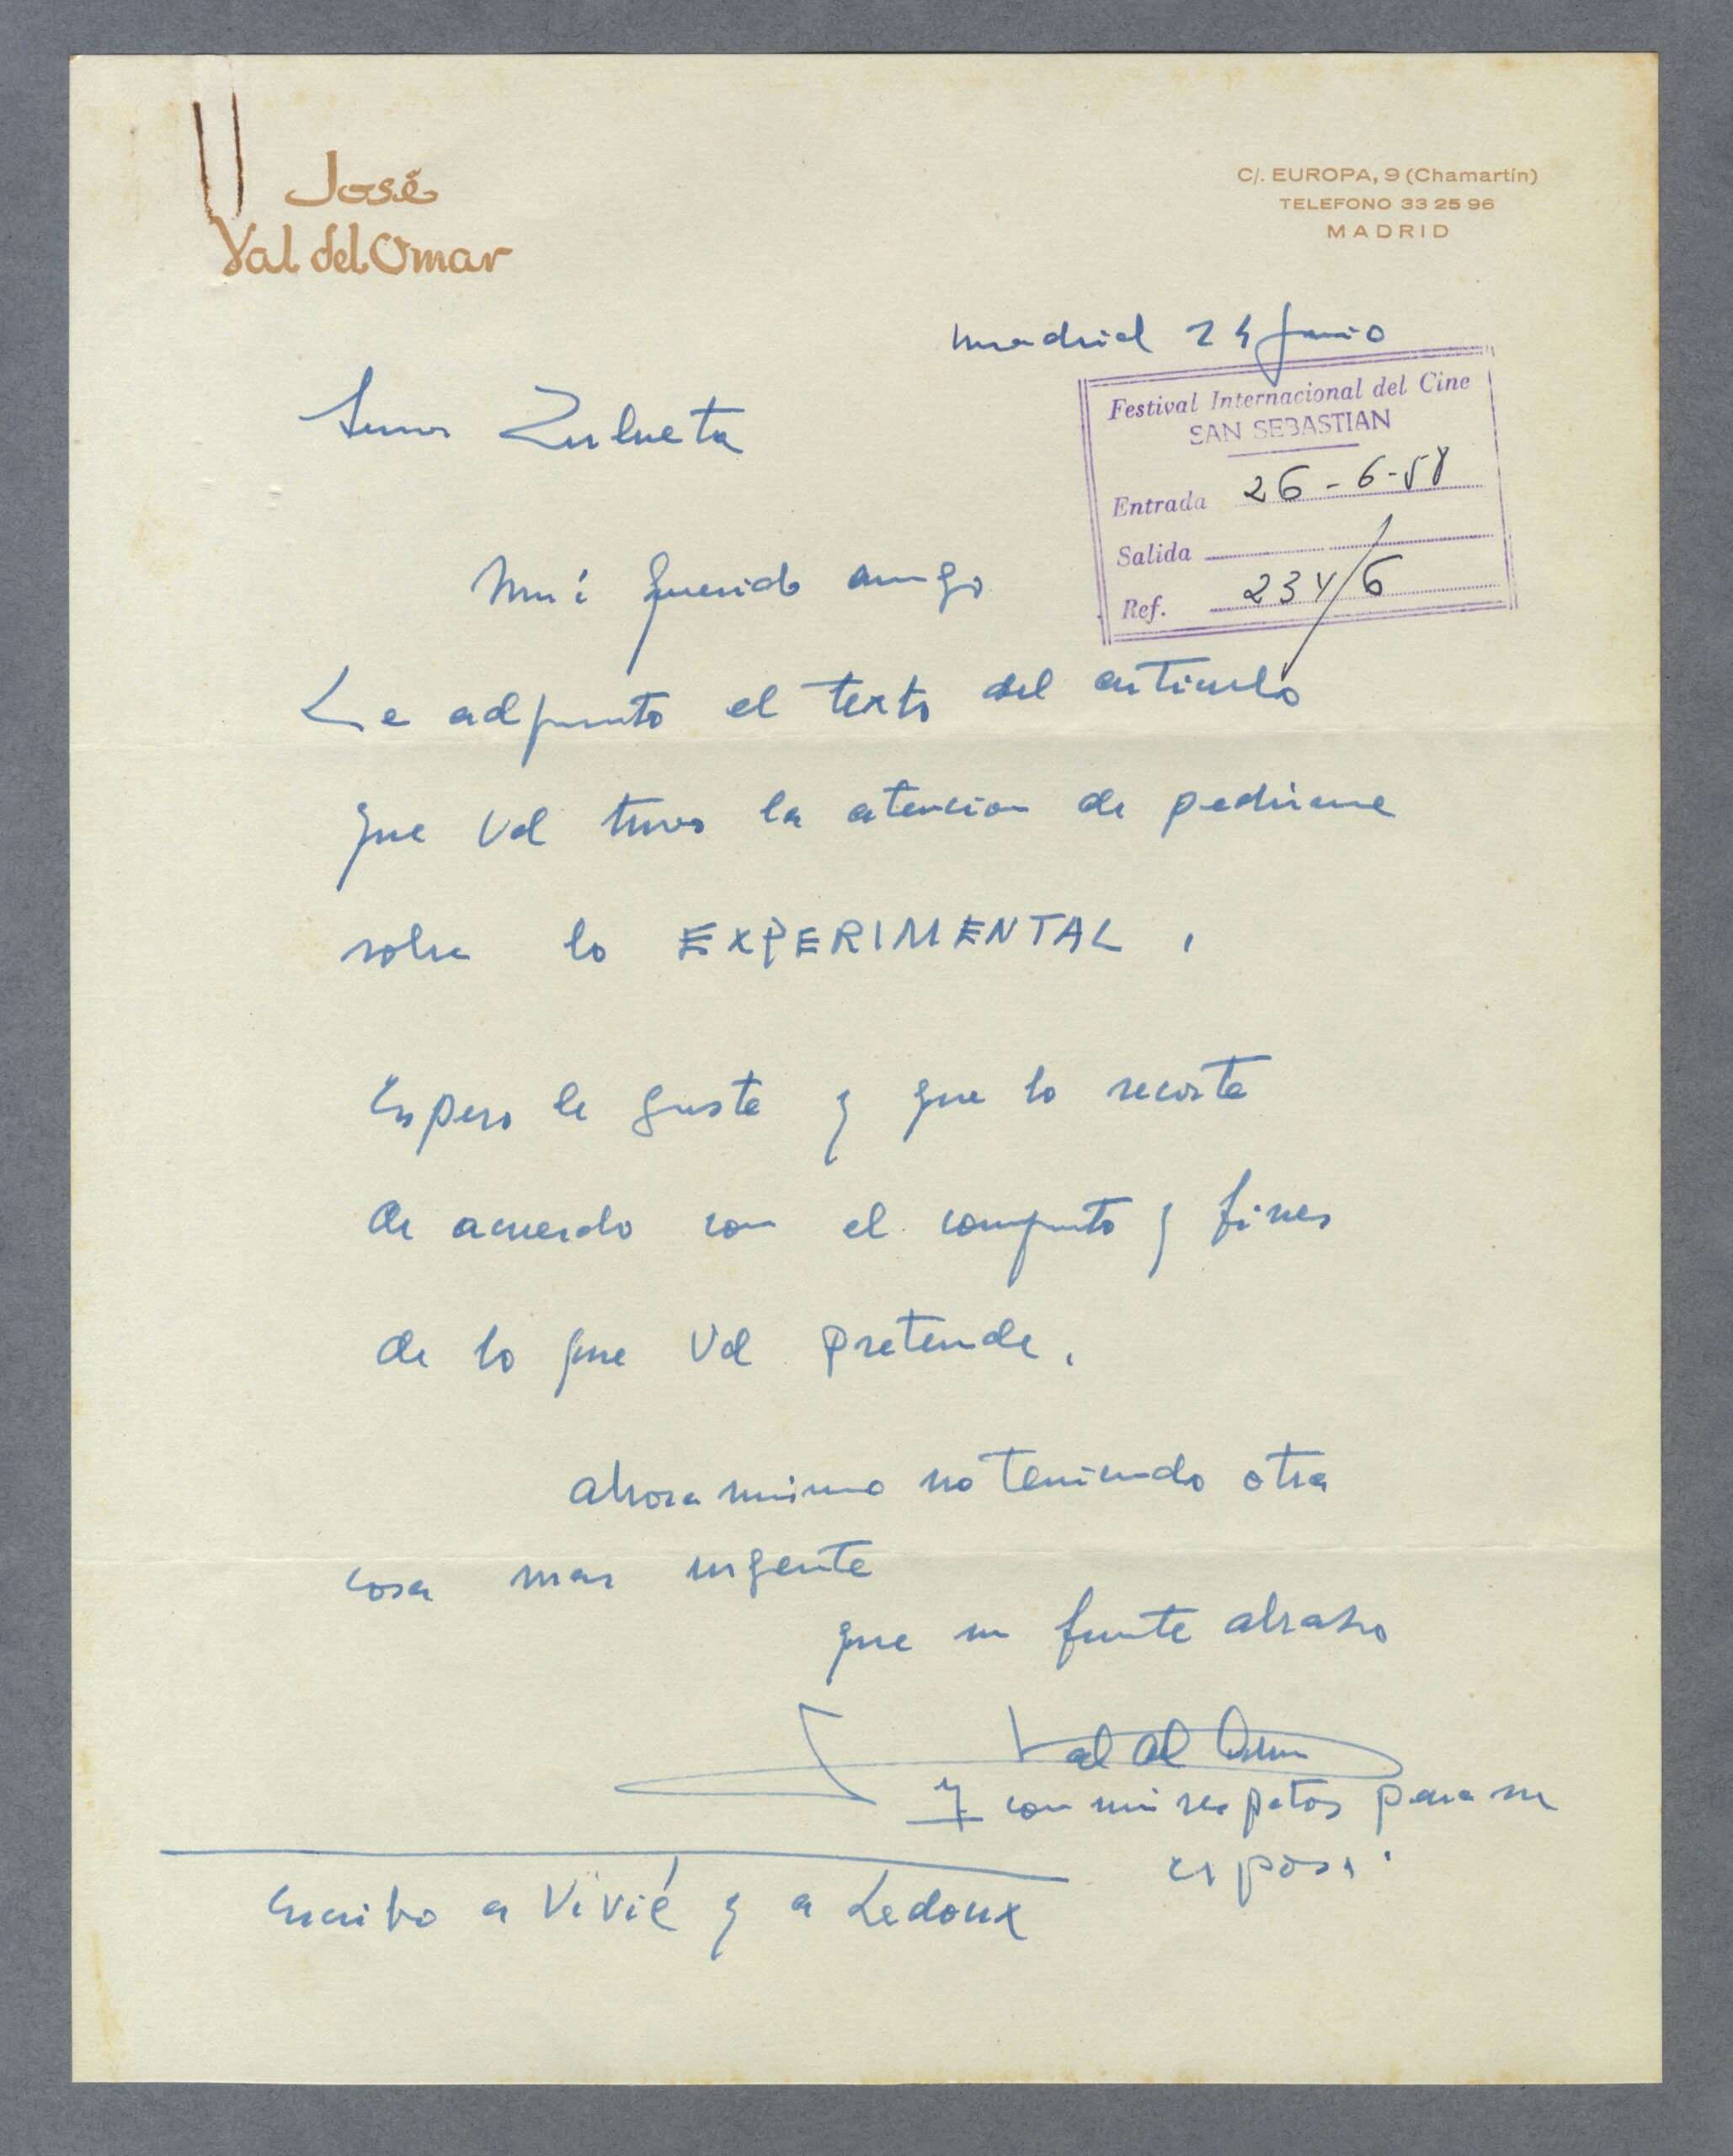 José
Val del Omar
C/. EUROPA, 9 (Chamartín)
TELEFONO 33 25 96
MADRID
Madrid 24 Junio
Festival Internacional del Cine
SAN SEBASTIAN
Entrada 26-6-58
Salida
Ref. 234/6
Señor Zulueta
Mi querido amigo
Le adjunto el texto del articulo
que Vd tuvo la atencion de pedirme
sobre lo EXPERIMENTAL.
Espero le guste y que lo recorte
de acuerdo con el conjunto y fines
de lo que Vd pretende.
ahora mismo no teniendo otra
cosa mas urgente
que un fuerte abrazo
Val del Omar
Y con mis respetos para su
esposa.
Escribo a Vivié y a Ledoux